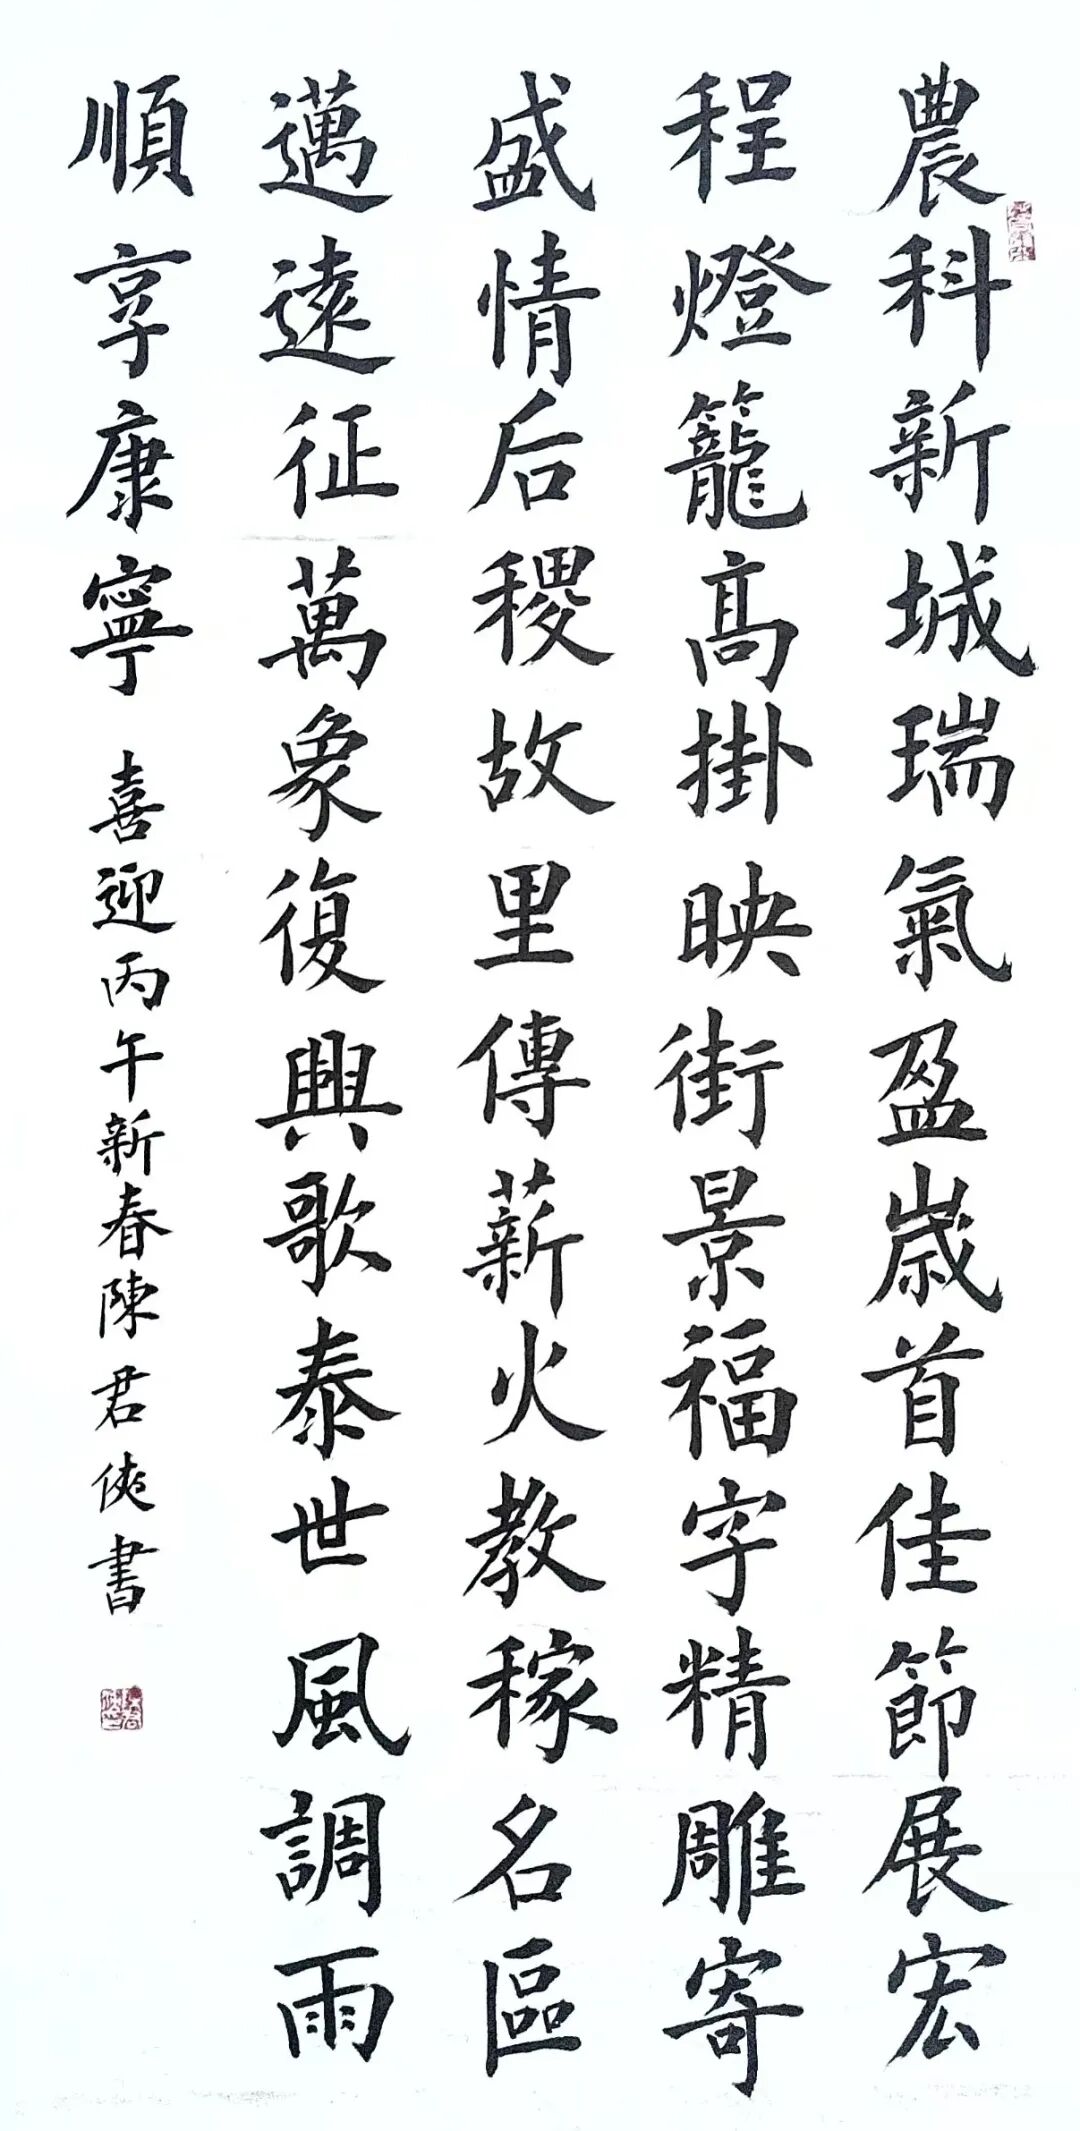 農科新城瑞氣盈歲首佳節展宏
程燈籠高掛映街景福字精雕寄
盛情后稷故里傳薪火教稼名區
邁遠征萬象復興歌泰世風調雨
順享康寧 喜迎丙午新春陳君俠書